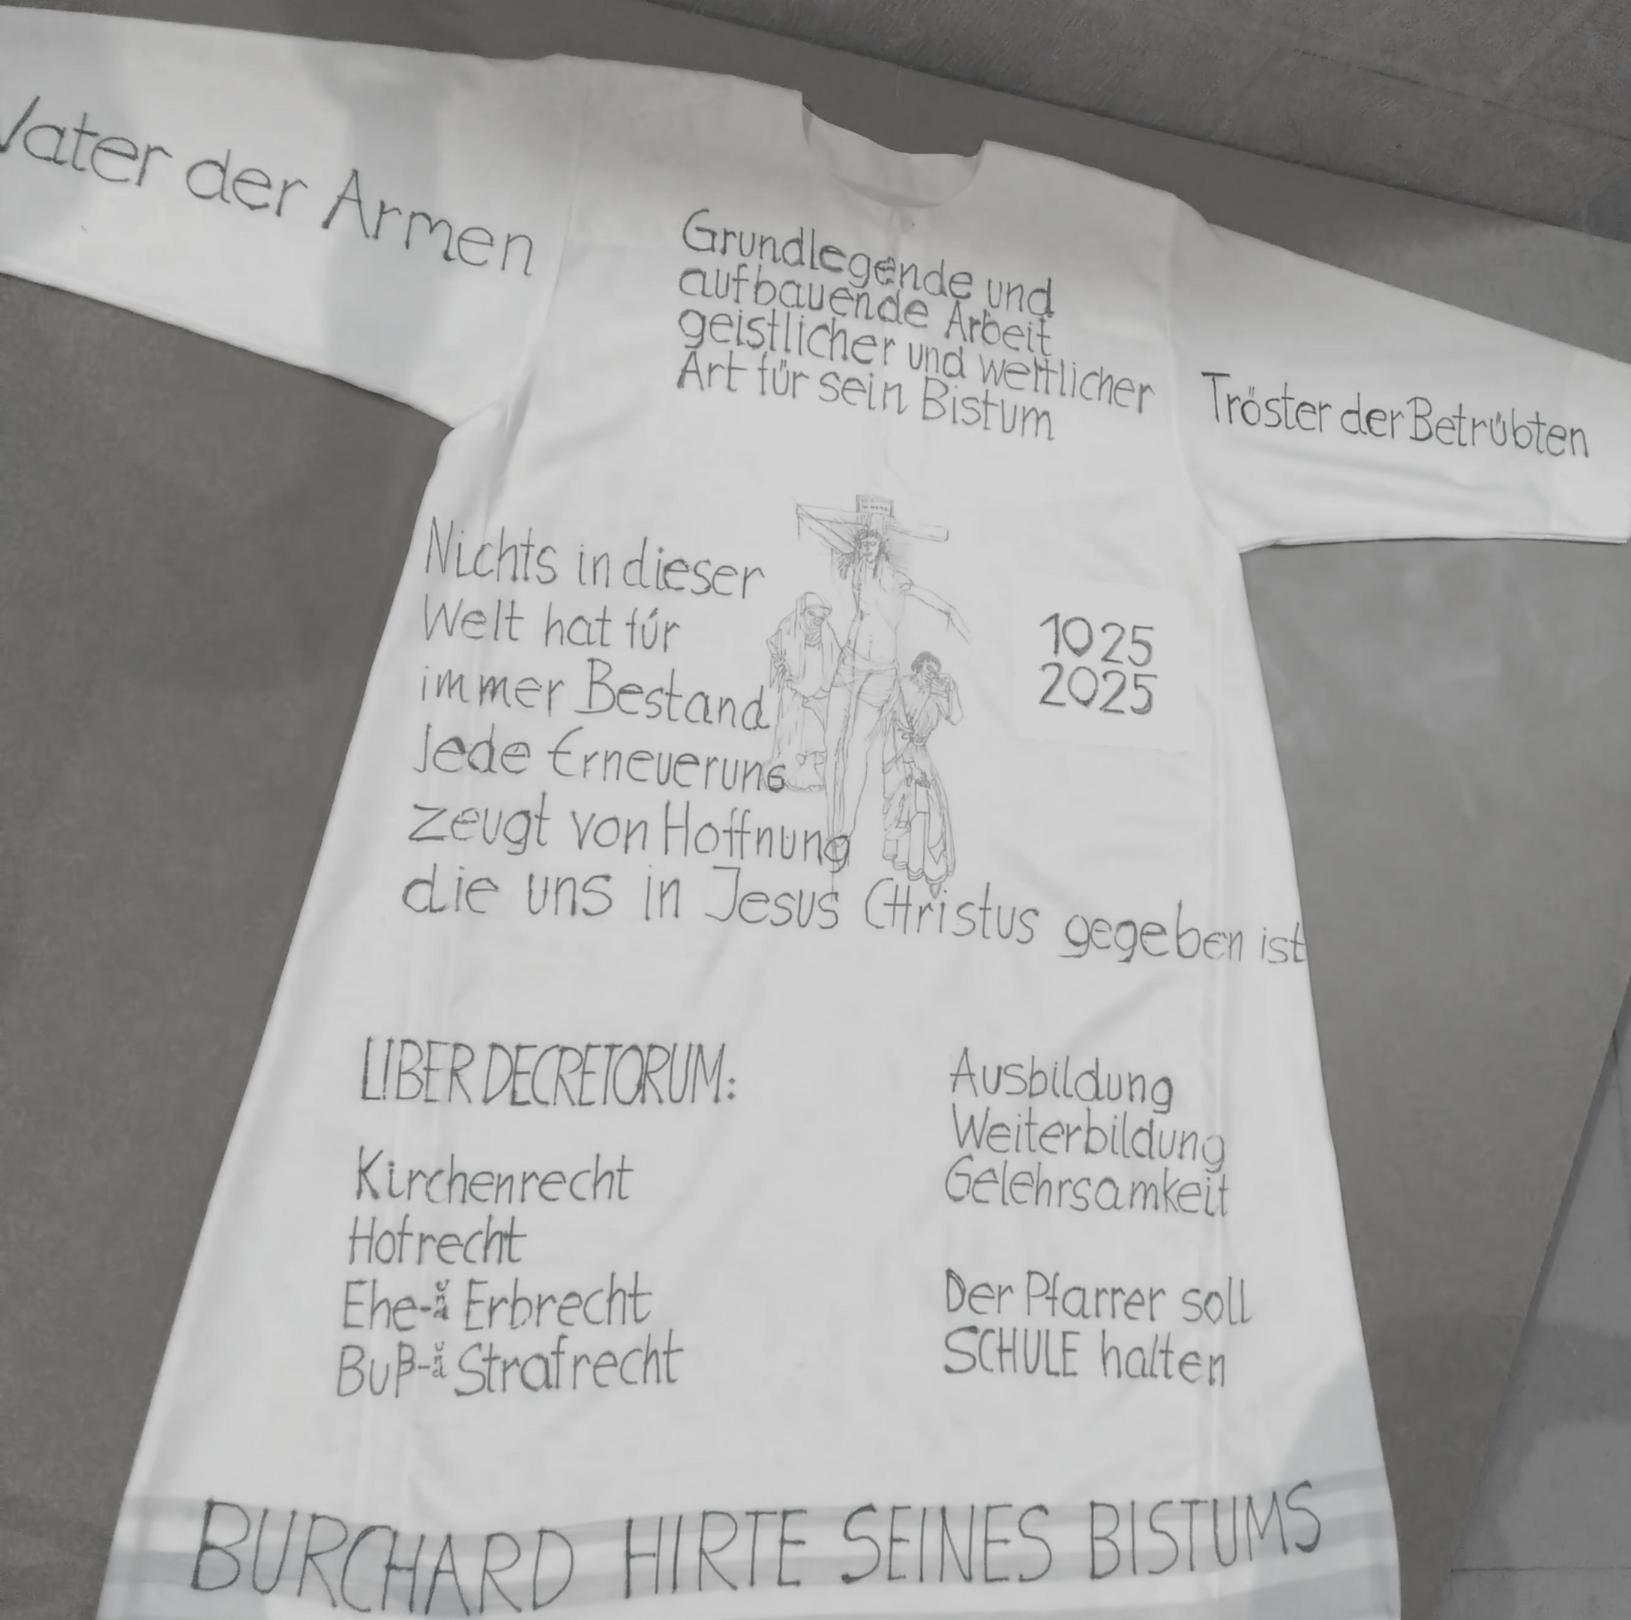 Vater der Armen
Grundlegende und
aufbauende Arbeit
geistlicher und weltlicher
Art für sein Bistum
Tröster der Betrübten
Nichts in dieser
Welt hat für
immer Bestand
Jede Erneuerung
zeugt von Hoffnung
die uns in Jesus CHristus gegeben ist
1025
2025
LIBER DECRETORUM:
Kirchenrecht
Hofrecht
Ehe- und Erbrecht
Buß- und Strafrecht
Ausbildung
Weiterbildung
Gelehrsamkeit
Der Pfarrer soll
SCHULE halten
BURCHARD HIRTE SEINES BISTUMS